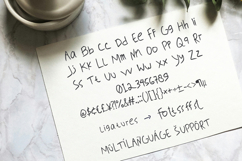 Aa Bb Cc Dd Ee Ff Gg Hh Ii
Jj Kk Ll Mm Nn Oo Pp Qq Rr
Ss Tt Uu Vv Ww Xx Yy Zz
0123456789
Ligatures →
MULTILANGUAGE SUPPORT